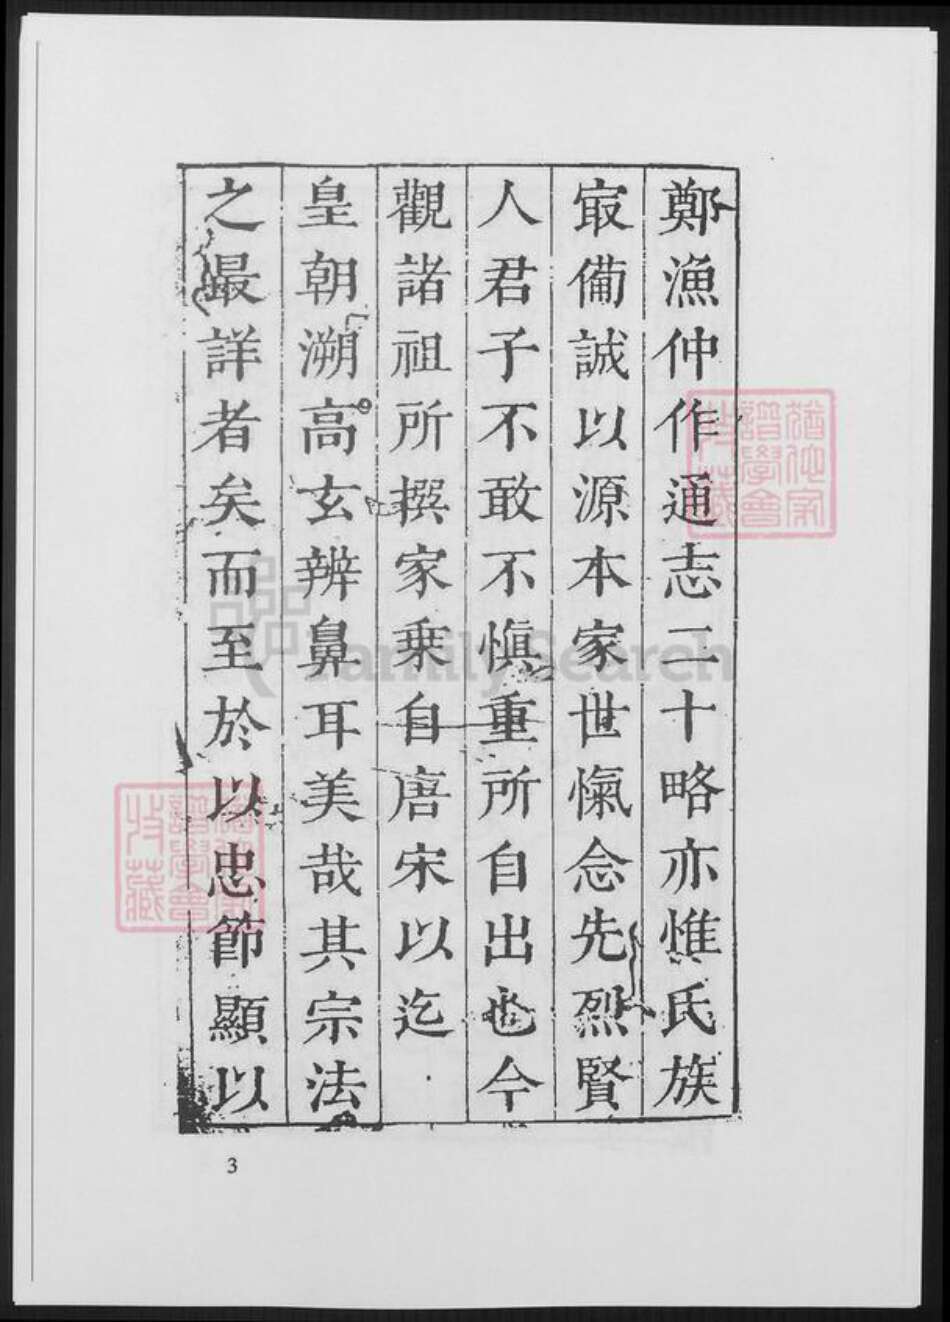 鄭漁仲作通志二十略亦惟氏族
㝡備誠以源本家世愾念先烈賢
人君子不敢不慎重所自出也今
觀諸祖所撰家乗自唐宋以迄
皇朝溯高玄辨鼻耳美哉其宗法
之最詳者矣而至於以忠節顯以
3
FamilySearch
譜學會
收藏
譜學會
收藏